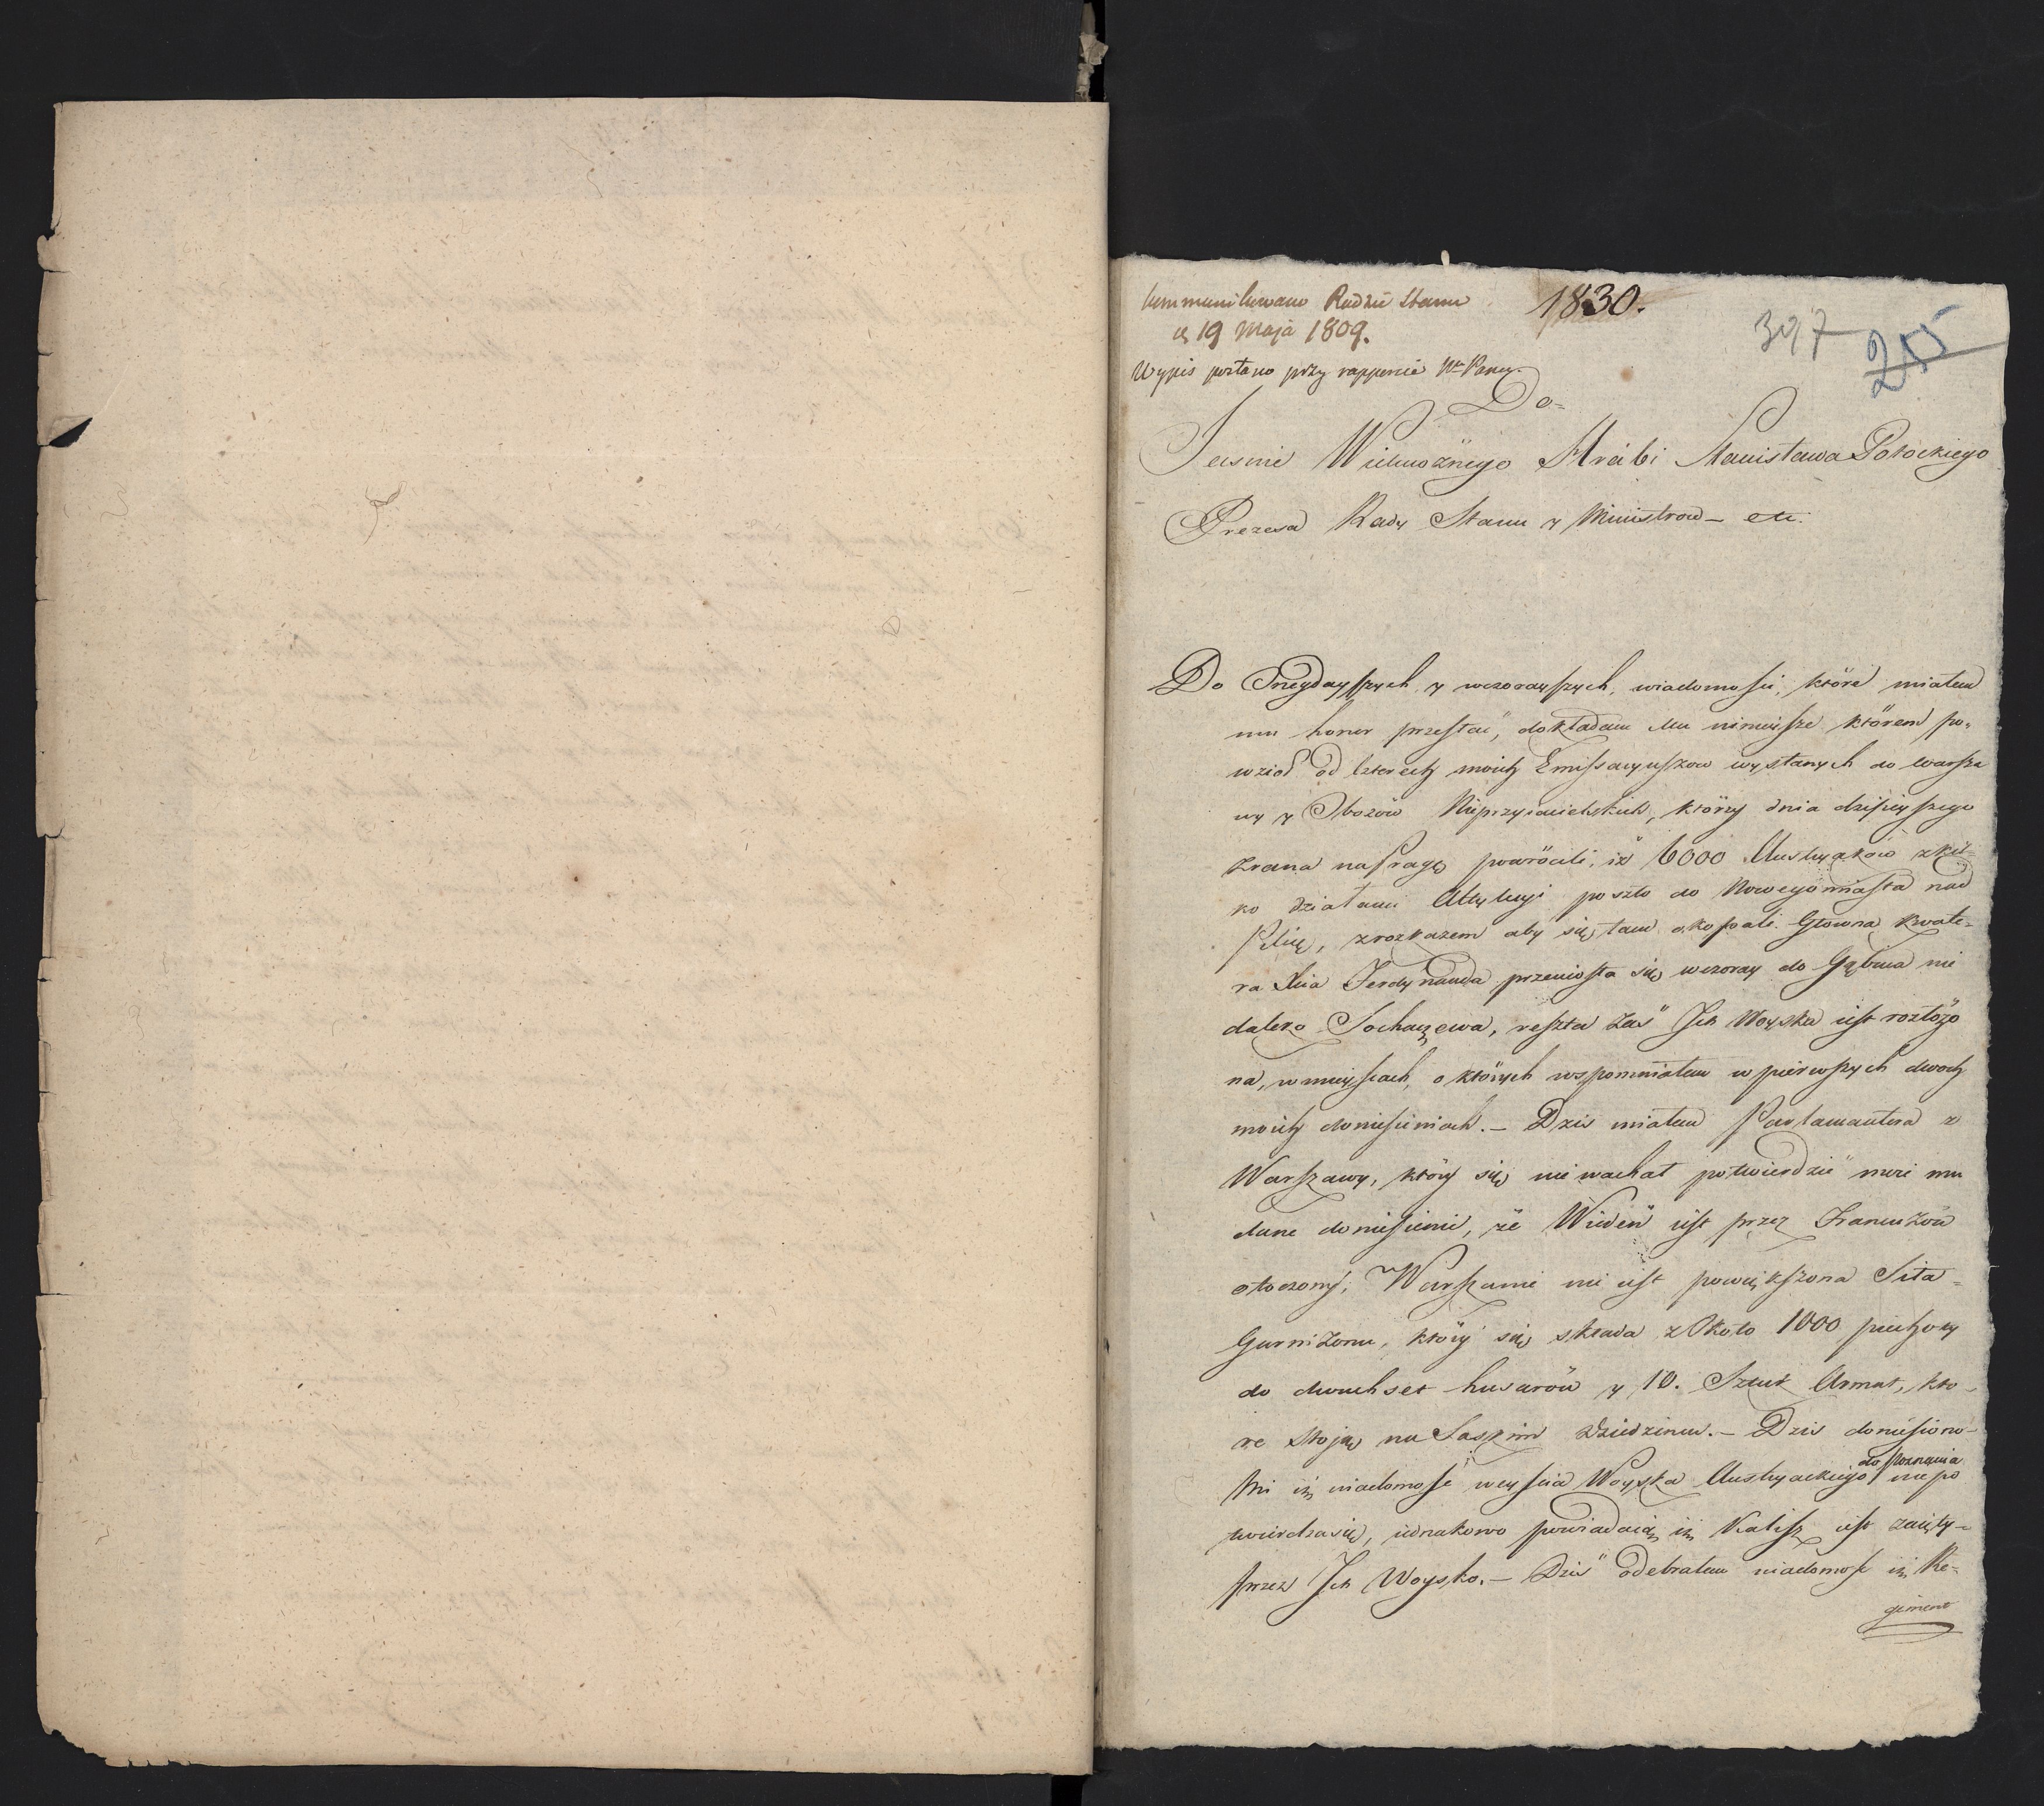 kommunikowano Radzie Stanu
d. 19 Maja 1809.
1830.
397
Wypis posłano przy rapporcie
Do
Jasnie Wielmożnego Hrabi Stanisława Potockiego
Prezesa Rady Stanu y Ministrow etc.
Do Oneydayszych y wczorayszych wiadomości, które miałem
mu honor przesłać, dokładam Mu nineysze którem po-
wziol od czterech moich Emissaryuszow wysłanych do Warsza
wy y Obozów Nieprzyiacielskich, którzy dnia dzisieyszego
zrana na Pragę powrócili, iż 6000 Austryaków z kil-
ko działami Attyleryi poszło do Nowegomiasta nad
Pilicę, z rozkazem aby się tam okopali. Głowna kwate-
ra Xcia Ferdynanda przeniosła się wczoray do Gąbina nie
daleko Sochaczewa, reszta zaś Ich Woyska iest rozłożo
na, w mieyscach, o których wspomniałem w pierwszych dwoch
moich doniesieniach. – Dzis miałem Parlamantera z
Warszawy, który się nie wachał potwierdzić meie mu
dane doniesienie, że Wiedeń iest przez Francuzów
otoczony; w Warszawie nie iest powiększona Siła
Garnizonu, który się składa z Około 1000 piechoty
do dwuchset husarów y 10. Sztuk Armat, kto-
re stoją na Saskim Dziedzincu. – Dzis doniesiono
Mi iż wiadomość weyscia Woyska Austryackiego do Poznania nie po
twierdza się, iednakowo powiadaią iż Kalisz iest zaięty
przez Ich Woysko. – Dziś odebrałem wiadomość iż Re-
giment